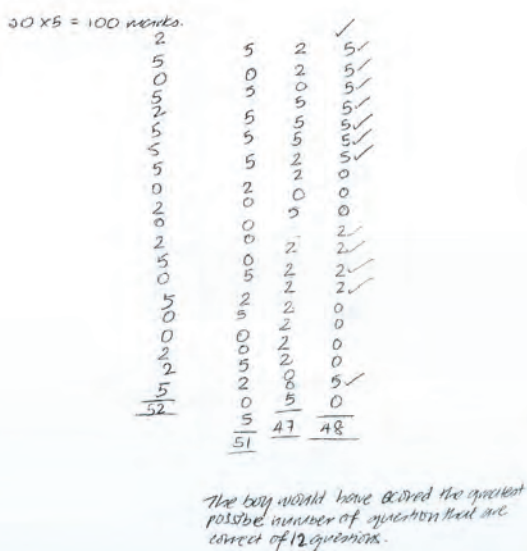 20 x5 = 100 marks.
2
5
0
5
2
5
5
5
0
2
0
2
5
0
5
0
0
2
2
5
52
5
0
5
5
5
5
2
0
0
0
0
5
2
5
0
0
5
2
0
5
51
2
2
0
5
5
5
2
2
0
5
2
2
2
2
2
2
2
0
5
47
✓
5✓
5✓
5✓
5✓
5✓
5✓
5✓
0
0
0
2✓
2✓
2✓
2✓
0
0
0
0
5✓
0
48
The boy would have scored the greatest
possbe number of question that are
correct of 12 questions.